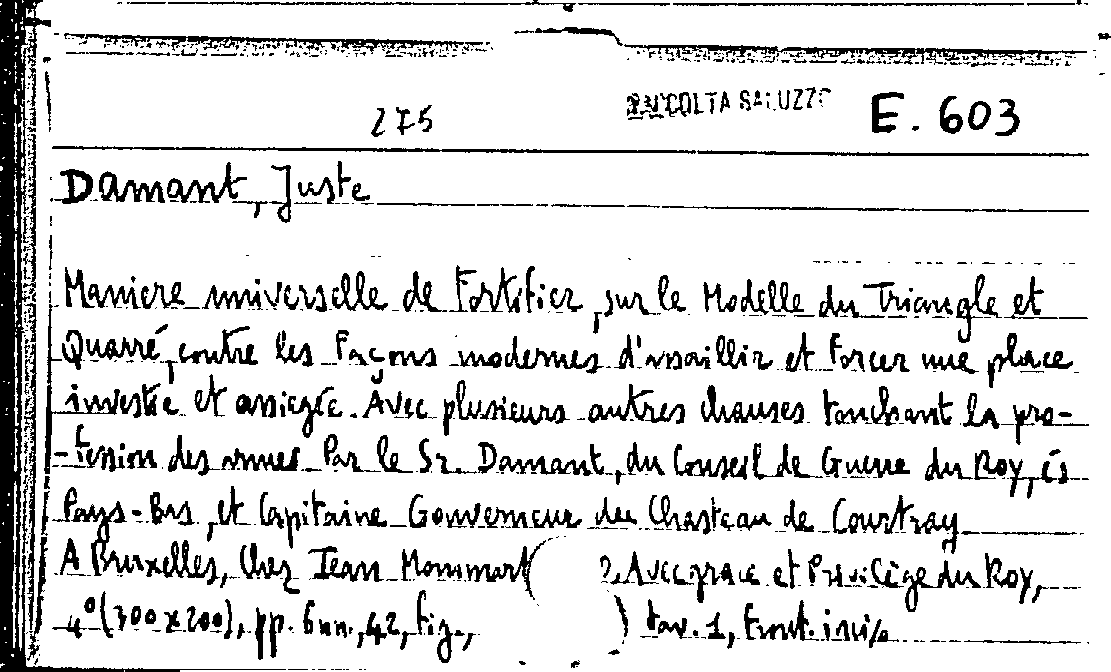 275 RACCOLTA SALUZZO E. 603
Damant, Juste
Maniere universelle de Fortifier, sur le Modelle du Triangle et
Quarré, contre les Façons modernes d'assaillir et Forcer une place
investie et assiegée. Avec plusieurs autres chauses touchant la pro-
-fession des armes. Par le Sr. Damant, du Conseil de Guerre du Roy, és
Pays-Bas, et Capitaine Gouverneur du Chasteau de Courtray
A Bruxelles, Chez Jean Mommart ( ?, Avec grace et Privilège du Roy,
4° (300x200), pp. 6nn., 42, fig., ) tav. 1, front.